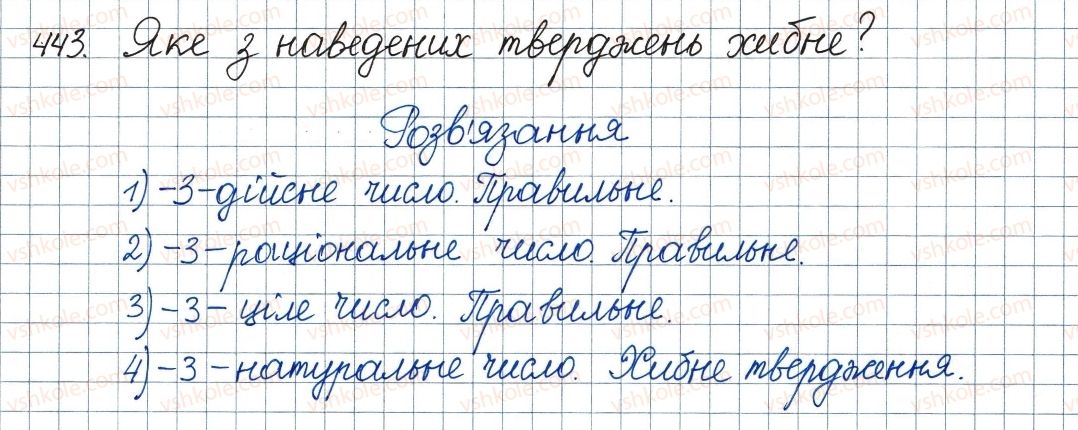 443. Яке з наведених тверджень хибне?
Розв'язання
1) -3 - дійсне число. Правильне.
2) -3 - раціональне число. Правильне.
3) -3 - ціле число. Правильне.
4) -3 - натуральне число. Хибне твердження.